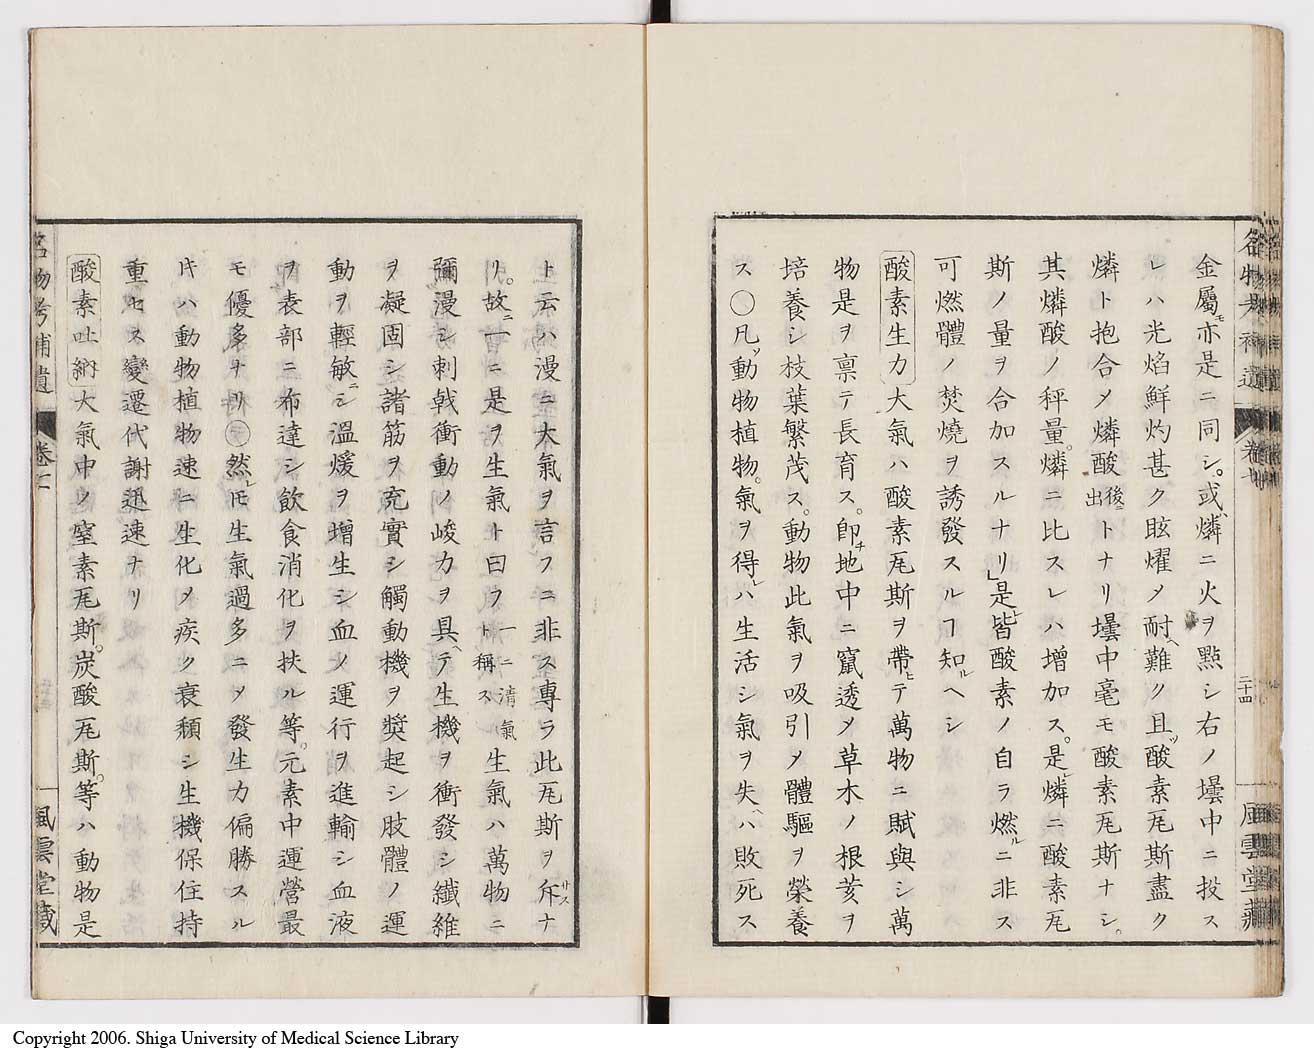 金屬モ亦是ニ同シ。或、燐ニ火ヲ點シ右ノ壜中ニ投ス
レハ光焰鮮灼甚ク眩燿メ耐ヘ難ク且ツ酸素瓦斯盡ク
燐ト抱合メ燐酸後ニ出トナリ壜中毫モ酸素瓦斯ナシ。
其燐酸ノ秤量。燐ニ比スレハ增加ス。是レ燐ニ酸素瓦
斯ノ量ヲ合加スルナリ」是レ皆酸素ノ自ラ燃ルニ非ス
可燃體ノ焚燒ヲ誘發スルヿ知ルヘシ
酸素生力大氣ハ酸素瓦斯ヲ帶ヒテ萬物ニ賦與シ萬
物是ヲ禀テ長育ス。卽チ地中ニ竄透メ草木ノ根荄ヲ
培養シ枝葉繁茂ス。動物此氣ヲ吸引メ體軀ヲ榮養
ス〇凡ソ動物植物。氣ヲ得レハ生活シ氣ヲ失ヘハ敗死ス
名物考補遺 卷七 二十四 風雲堂藏
ト云ハ漫ニ大氣ヲ言フニ非ス專ラ此瓦斯ヲ斥サスナ
リ。故ニ一ニ是ヲ生氣ト曰フ一ニ清氣ト稱ス生氣ハ萬物ニ
彌漫シ刺戟衝動ノ峻力ヲ具ヘテ生機ヲ衝發シ纖維
ヲ凝固シ諸筋ヲ充實シ觸動機ヲ奬起シ肢體ノ運
動ヲ輕敏ニシ溫煖ヲ增生シ血ノ運行ヲ進輸シ血液
ヲ表部ニ布達シ飮食消化ヲ扶ル等。元素中運營最
モ優多ナリ〇然レ𪜈生氣過多ニメ發生力偏勝スル
𪜈ハ動物植物速ニ生化メ疾ク衰頽シ生機保住持
重セス變遷代謝迅速ナリ
酸素吐納大氣中ノ窒素瓦斯。炭酸瓦斯。等ハ動物是
名物考補遺 卷七 風雲堂藏
Copyright 2006. Shiga University of Medical Science Library